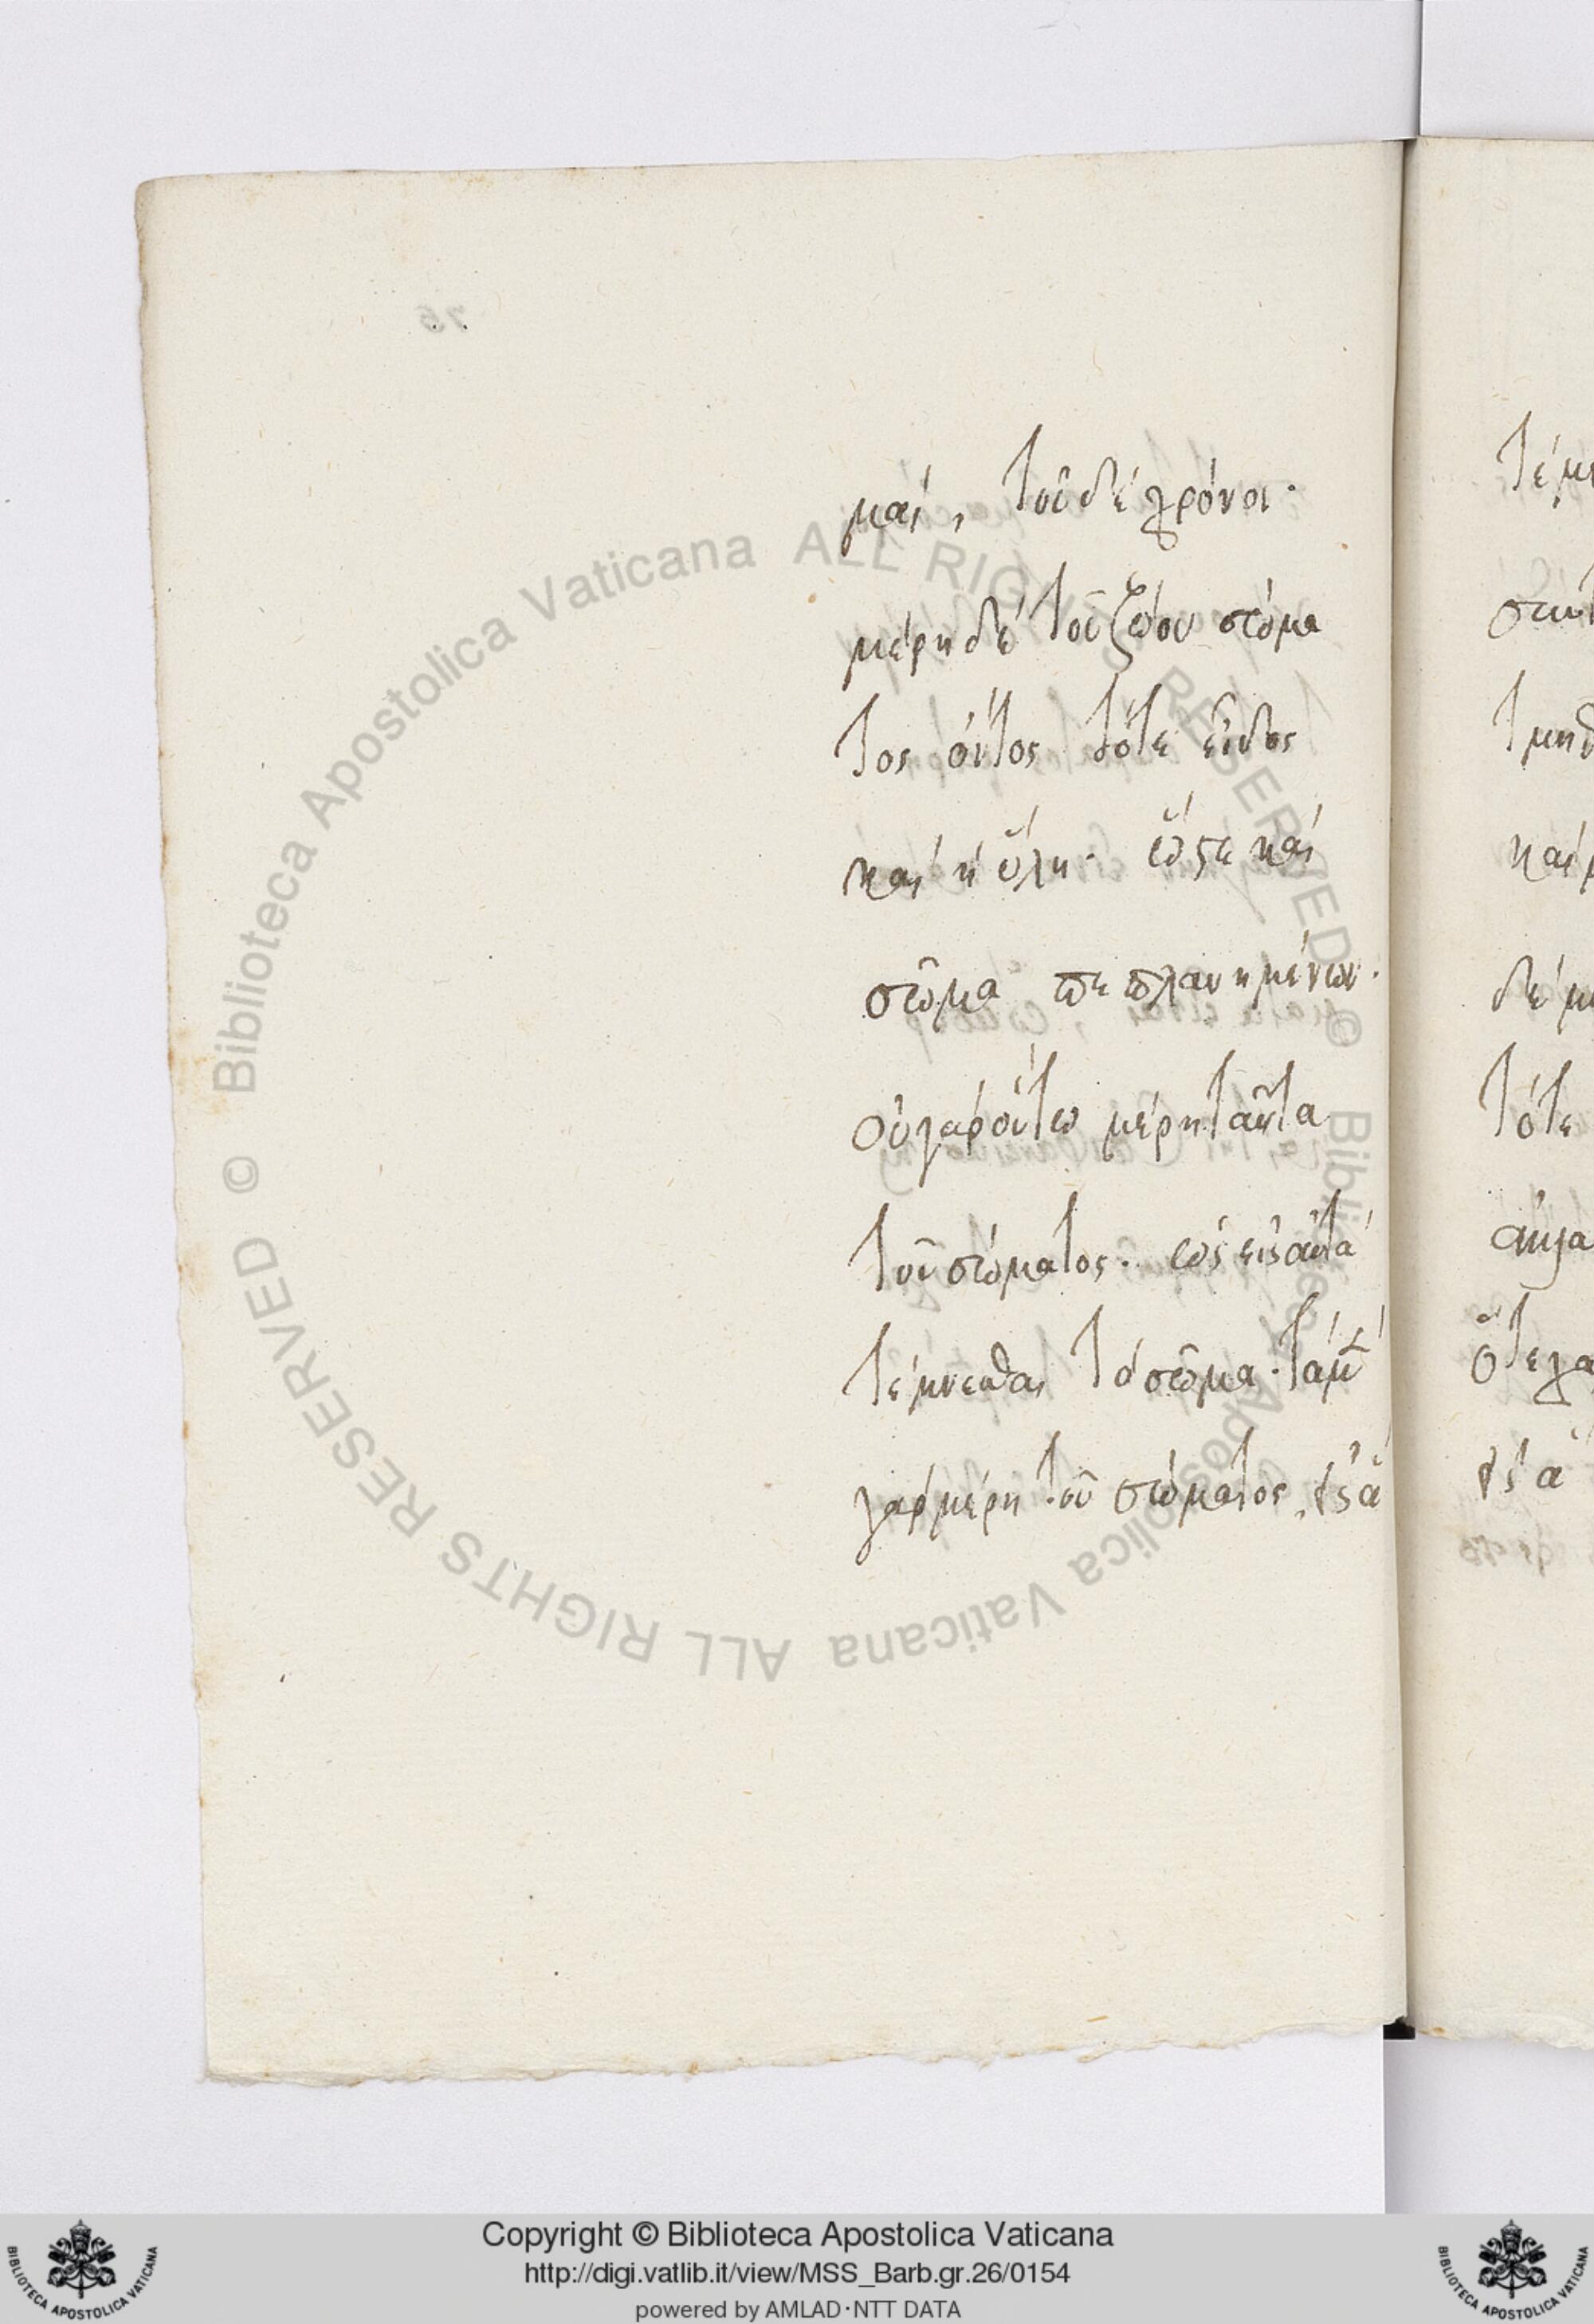 75
μαί, τοῦ δέ χρόνοι·
μέρη δέ τοῦ ζώου σώμα
τος ὄντος τότε εἶδος
καί ἡ ὕλη· ὥστε καί
σῶμα πεπλανημένων·
οὐ γάρ οὕτω μέρη ταῦτα
τοῦ σώματος· ὡς εἰς αὐτά
τέμνεσθαι τό σῶμα· τά μ
γάρ μέρη τοῦ σώματος, ἐς ἅ
τέμ
τμηθ
καί μ
δέ μ
τότε
ὅτε γα
Copyright © Biblioteca Apostolica Vaticana
http://digi.vatlib.it/view/MSS_Barb.gr.26/0154
powered by AMLAD·NTT DATA
BIBLIOTECA APOSTOLICA VATICANA
BIBLIOTECA APOSTOLICA VATICANA
© Biblioteca Apostolica Vaticana ALL RIGHTS RESERVED © Biblioteca Apostolica Vaticana ALL RIGHTS RESERVED